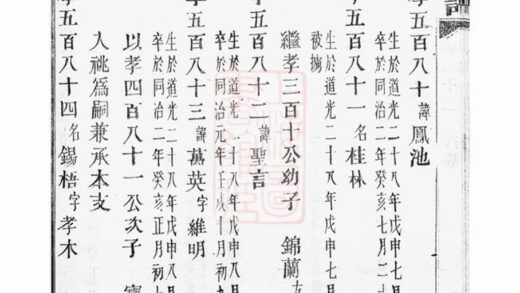 譜
孝五百八十諱鳳池
生於道光二十八年戊申八月
卒於同治二年癸亥七月二十
孝五百八十一名桂林
生於道光二十八年戊申七月
被擄
繼孝三百十公幼子 錦蘭
孝五百八十二諱聖言
生於道光二十八年戊申八月
卒於同治元年壬戌十月初九
孝五百八十三諱萬英字維明
生於道光二十八年戊申八月
卒於同治二年癸亥正月初
以孝四百八十一公次子
入祧爲嗣兼承本支
孝五百八十四名錫梧字孝木